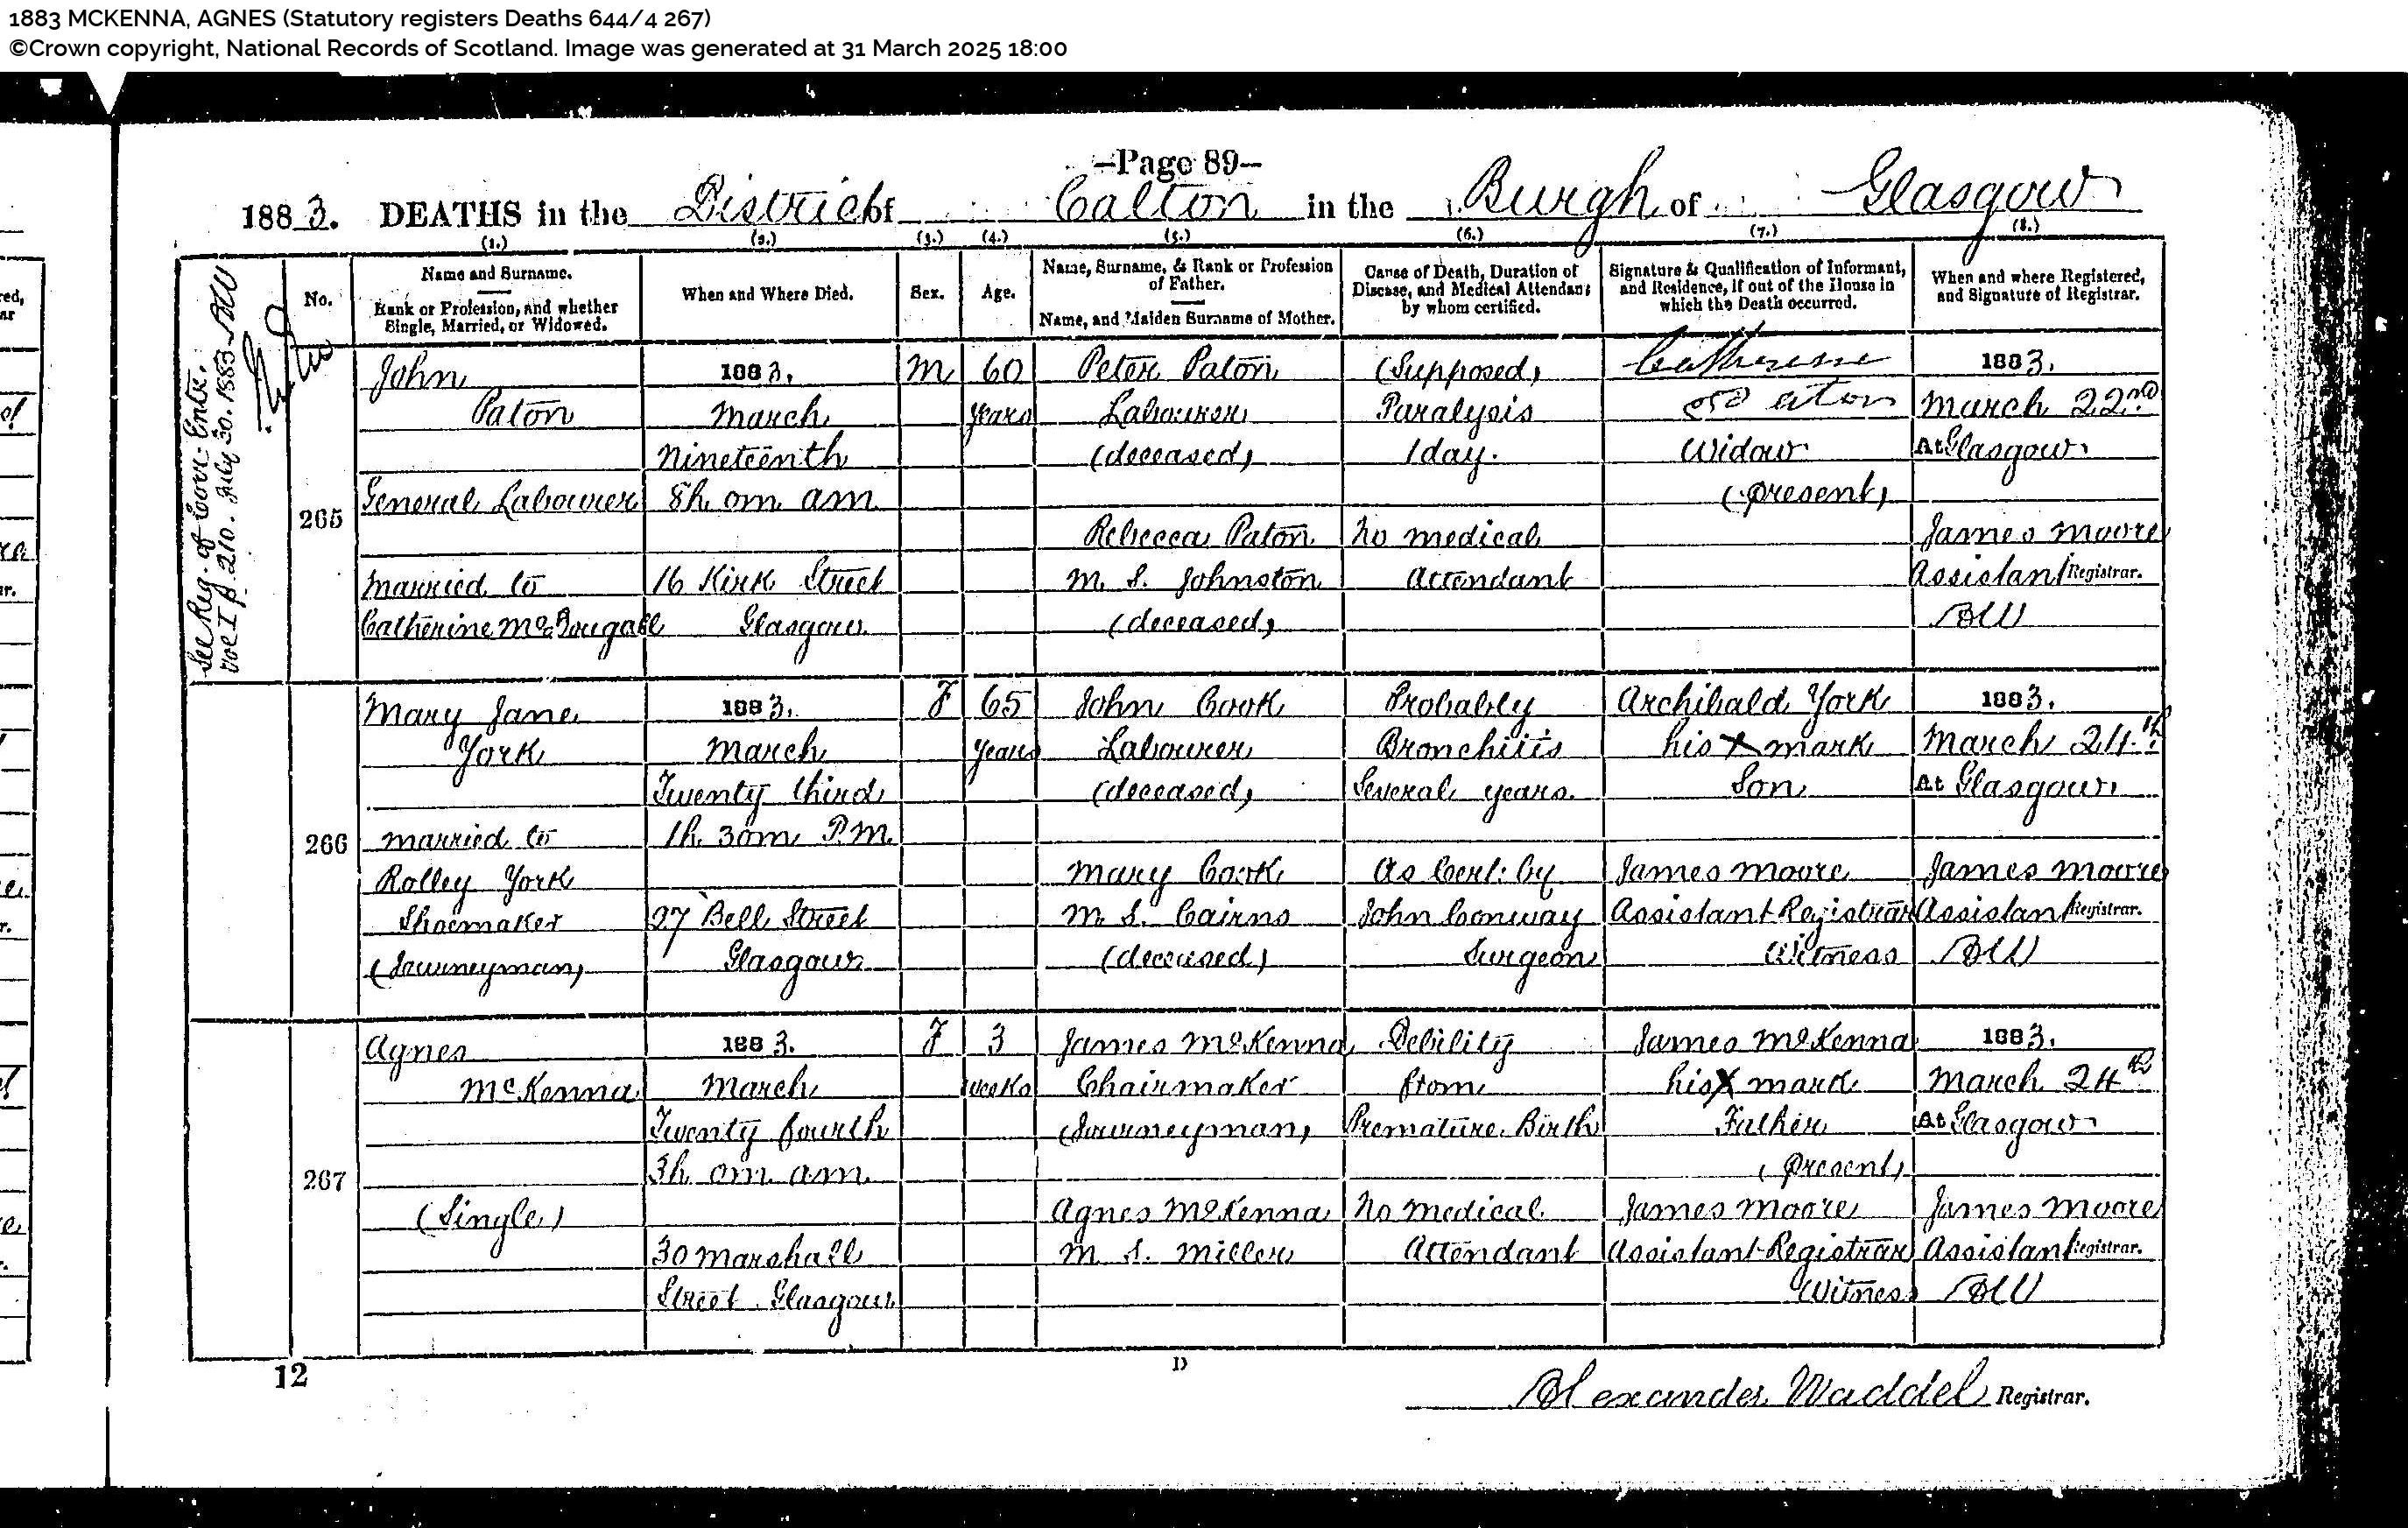 1883 MCKENNA, AGNES (Statutory registers Deaths 644/4 267)
©Crown copyright, National Records of Scotland. Image was generated at 31 March 2025 18:00
—Page 89—
1883. DEATHS in the District of Calton in the Burgh of Glasgow
(1.) (2.) (3.) (4.) (5.) (6.) (7.) (8.)
No.
Name and Surname.
Rank or Profession, and whether
Single, Married, or Widowed.
When and Where Died.
Sex.
Age.
Name, Surname, & Rank or Profession
of Father.
Name, and Maiden Surname of Mother.
Cause of Death, Duration of
Disease, and Medical Attendant
by whom certified.
Signature & Qualification of Informant,
and Residence, if out of the House in
which the Death occurred.
When and where Registered,
and Signature of Registrar.
See Reg. of Corr. Entr.
Vol I p. 210. July 30. 1883 AW
265
John
Paton
General Labourer
Married to
Catherine McDougall
1883.
March
Nineteenth
8h 0m am
16 Kirk Street
Glasgow
M
60
years
Peter Paton
Labourer
(deceased)
Rebecca Paton
M. S. Johnston
(deceased)
(Supposed)
Paralysis
1 day.
No medical
Attendant
Catherine
Paton
Widow
(present)
1883.
March 22nd
At Glasgow
James Moore
Assistant Registrar.
AW
266
Mary Jane
York
Married to
Rolley York
Shoemaker
(Journeyman)
1883.
March
Twenty third
1h 30m P.M.
27 Bell Street
Glasgow
F
65
years
John Cook
Labourer
(deceased)
Mary Cook
M. S. Cairns
(deceased)
Probably
Bronchitis
Several years.
As Cert. by
John Conway
Surgeon
Archibald York
his X mark
Son
James Moore
Assistant Registrar
Witness
1883.
March 24th
At Glasgow
James Moore
Assistant Registrar.
AW
267
Agnes
McKenna
(Single)
1883.
March
Twenty fourth
3h 0m am
30 Marshall
Street Glasgow
F
3
weeks
James McKenna
Chairmaker
(Journeyman)
Agnes McKenna
M. S. Miller
Debility
from
Premature Birth
No medical
Attendant
James McKenna
his X mark
Father
(present)
James Moore
Assistant Registrar
Witness
1883.
March 24th
At Glasgow
James Moore
Assistant Registrar.
AW
12
D
Alexander Waddel Registrar.